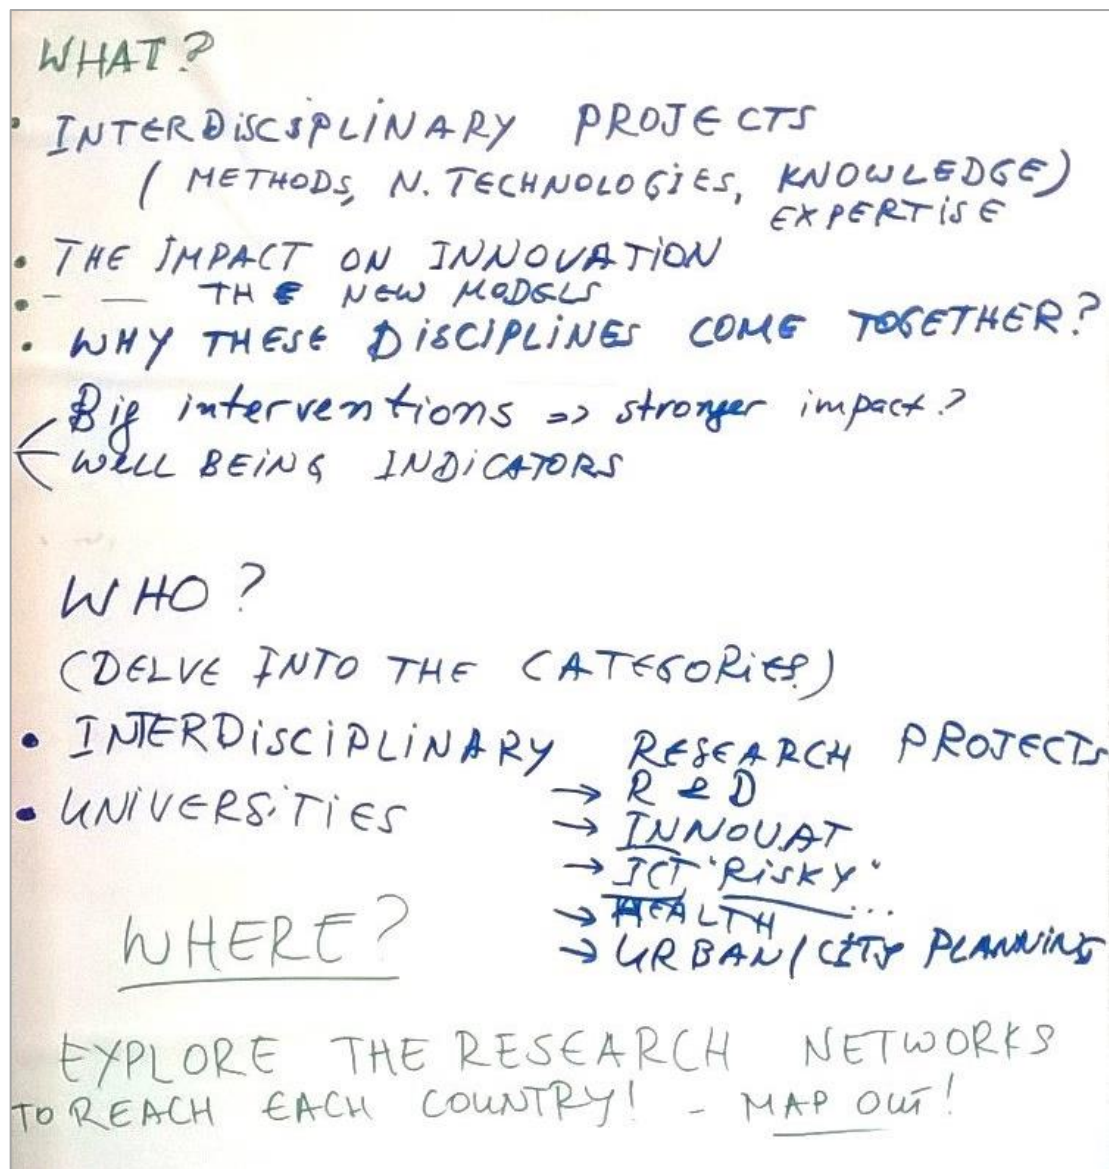 WHAT?
• INTERDISCIPLINARY PROJECTS
( METHODS, N. TECHNOLOGIES, KNOWLEDGE)
EXPERTISE
• THE IMPACT ON INNOVATION
• - — THE NEW MODELS
• WHY THESE DISCIPLINES COME TOGETHER?
Big interventions => stronger impact?
WELL BEING INDICATORS
WHO?
(DELVE INTO THE CATEGORIES)
• INTERDISCIPLINARY RESEARCH PROJECTS
• UNIVERSITIES
→ R & D
→ INNOVAT
→ ICT "RISKY"
→ HEALTH ...
→ URBAN / CITY PLANNING
WHERE?
EXPLORE THE RESEARCH NETWORKS
TO REACH EACH COUNTRY! - MAP OUT!